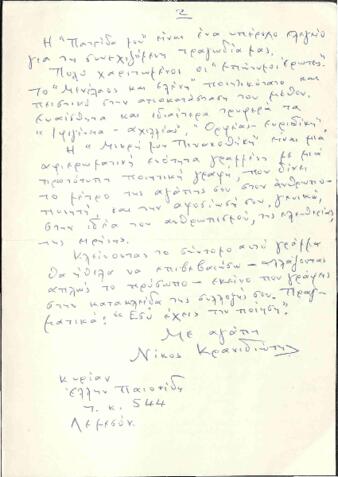 2
Η "Πατρίδα μου" είναι ένα υπέροχο ελεγείο
για τη συνεχιζόμενη τραγωδία μας.
Πολύ χαριτωμένοι οι "επώνυμοι έρωτες".
Το "Μενέλαος και Ελένη" ποιητικότατο και
πειστικό στην αποκατάσταση του μύθου.
Ευαίσθητα και ιδιαίτερα τρυφερά τα
"Ιφιγένεια - Αχιλλέας", "Ορφέας - Ευριδίκη".
Η "Μικρή μου Πινακοθήκη" είναι μια
αφιερωματική ενότητα γραμμένη με μιά
πρωτότυπη ποιητική γραφή, που δίνει
το μέτρο της αγάπης σου στον άνθρωπο-
ποιητή, και την αφοσίωσή σου, γενικά,
στην ιδέα του ανθρωπισμού, της ελευθερίας,
της ειρήνης.
Κλείνοντας το σύντομο αυτό γράμμα
θα ήθελα να επιβεβαιώσω - αλλάζοντας
απλώς το πρόσωπο - εκείνο που γράφεις
στην κατακλείδα της συλλογής σου. Πραγ-
ματικά: "Εσύ έχεις την ποίηση".
Με αγάπη
Νίκος Κρανιδιώτης
Κυρίαν
Έλλην Παιονίδη
Τ. Κ. 544
Λεμεσόν.